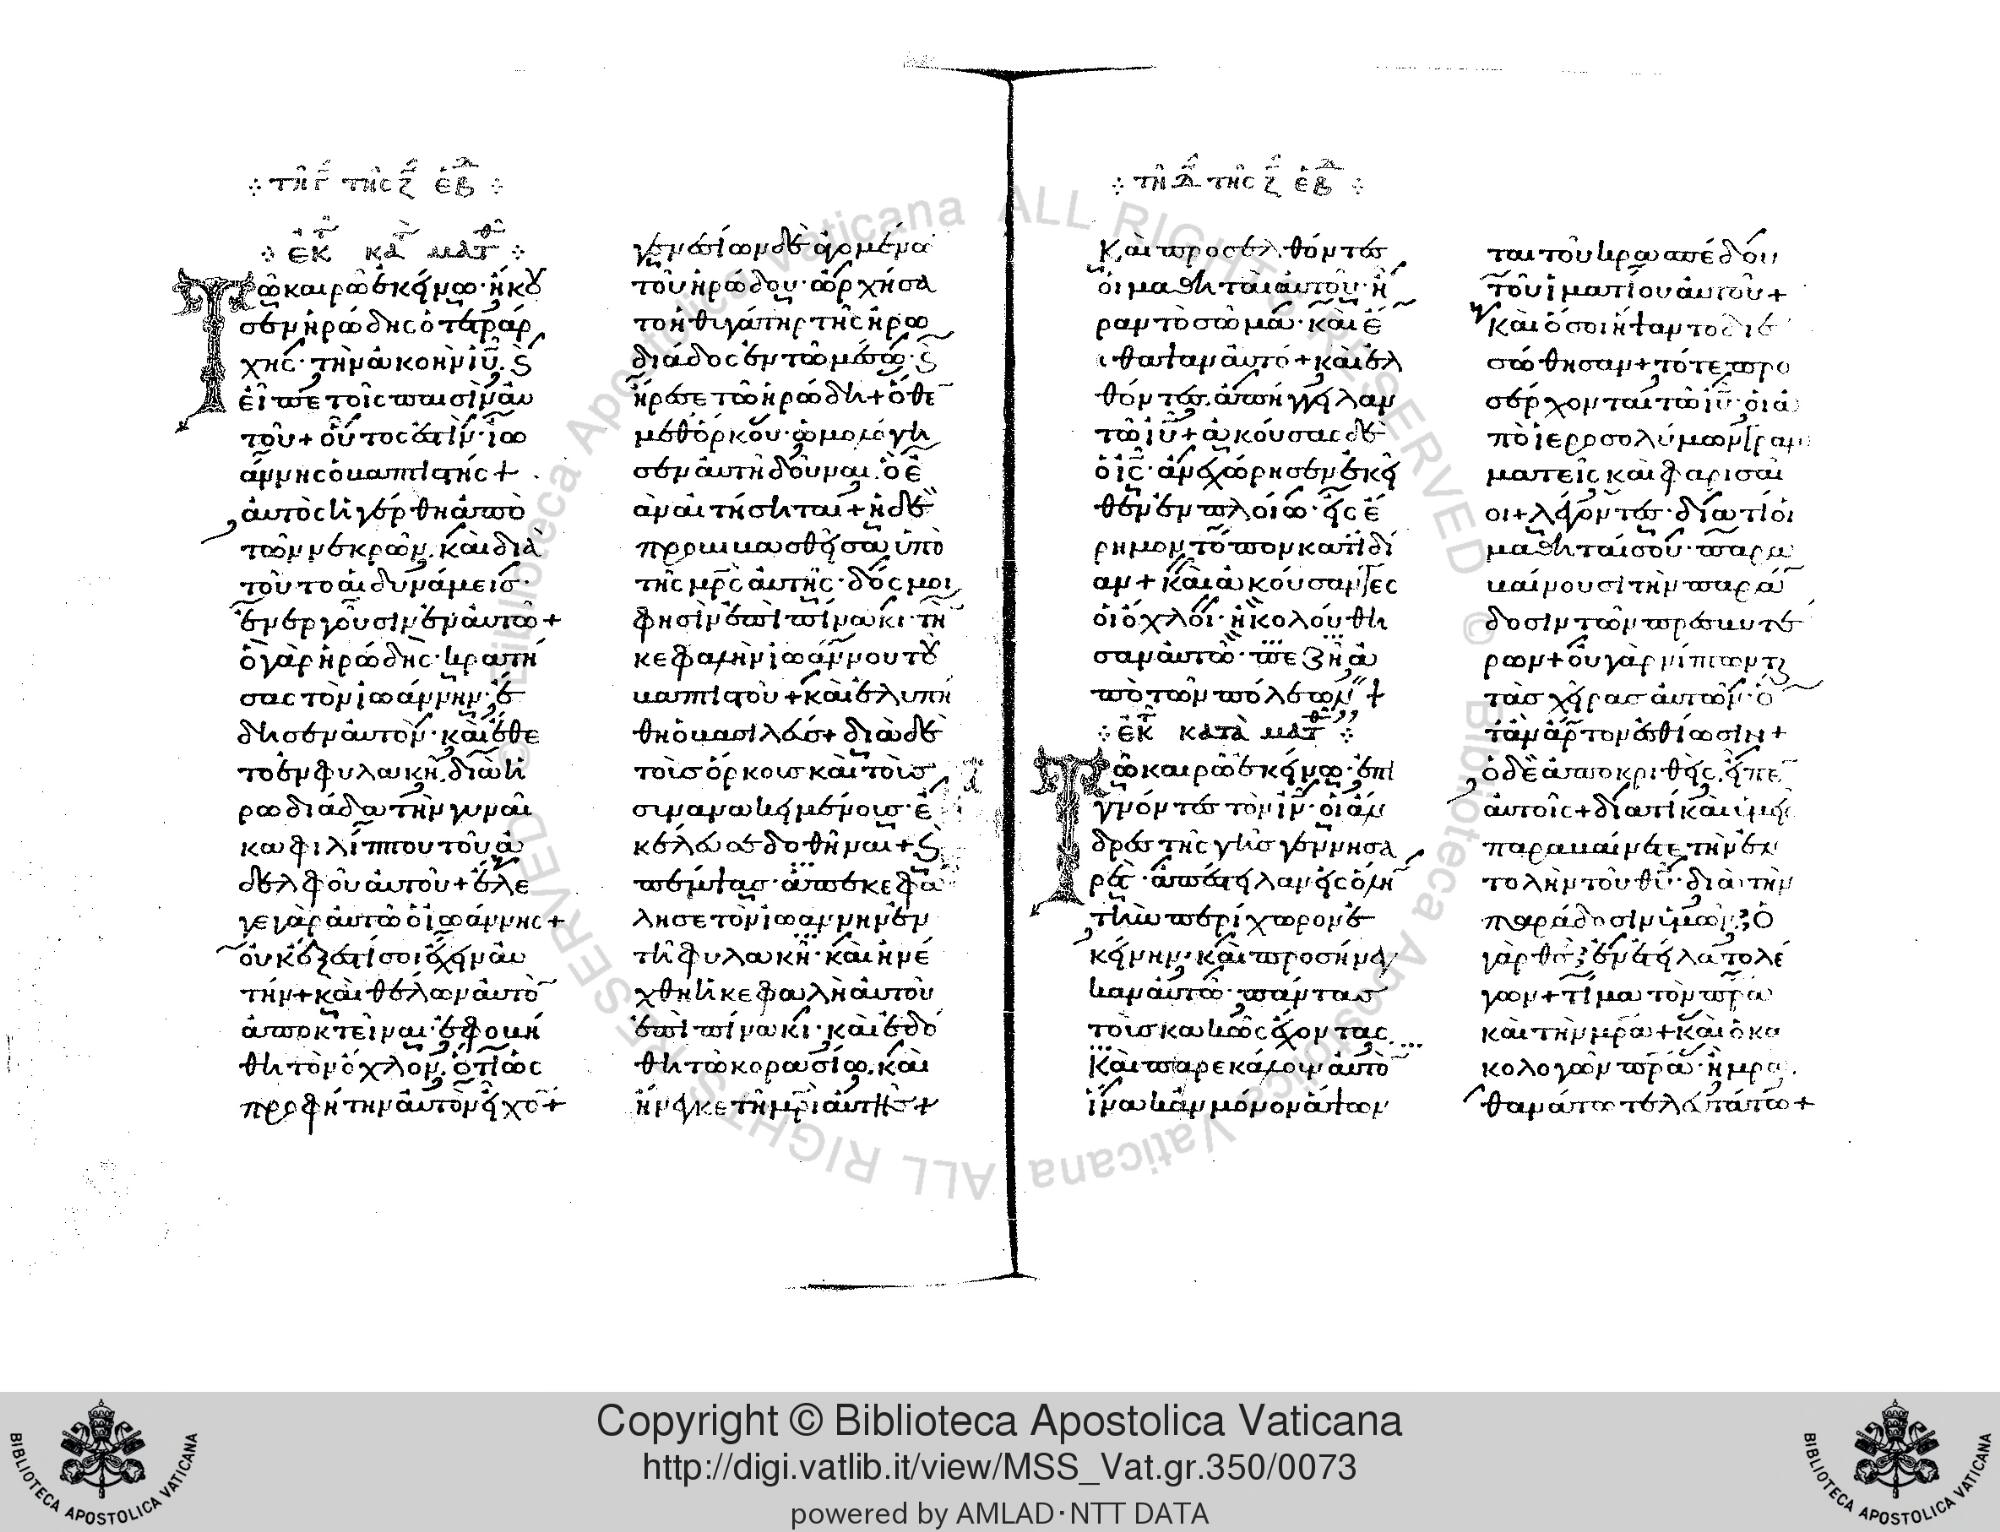 τῆ γ τῆς ζ ἑβδ
ἐκ κατ ματθ
Τῶ καιρῶ ἐκείνω· ἤκου
σεν ἡρώδης ὁ τετράρ
χης· τὴν ἀκοὴν ἰυ· καὶ
εἶπε τοῖς παισὶν αὐ
τοῦ + οὗτος ἐστὶν· ἰω
άννης ὁ βαπτιστής +
αὐτὸς ἠγέρθη ἀπὸ
τῶν νεκρῶν· καὶ διὰ
τοῦτο αἱ δυνάμεις·
ἐνεργοῦσιν ἐν αὐτῶ +
ὁ γὰρ ἡρώδης· κρατή
σας τὸν ἰωάννην· ἔ
δησεν αὐτὸν· καὶ ἔθε
το ἐν φυλακῆ· διὰ ἡ
ρωδιάδα τὴν γυναῖ
κα φιλίππου τοῦ ἀ
δελφοῦ αὐτοῦ + ἔλε
γε γὰρ αὐτῶ ὁ ἰωάννης +
οὐκ ἔξεστί σοι ἔχειν αὐ
τήν + καὶ θέλων αὐτὸν
ἀποκτεῖναι· ἐφοβή
θη τὸν ὄχλον· ὅτι ὡς
προφήτην αὐτὸν εἶχον +
γενεσίων δὲ ἀγομένων
τοῦ ἡρώδου· ὠρχήσα
το ἡ θυγάτηρ τῆς ἡρω
διάδος ἐν τῶ μέσω· καὶ
ἤρεσε τῶ ἡρώδη + ὅθεν
μεθ ὅρκου· ὡμολόγη
σεν αὐτῆ δοῦναι· ὃ ἐ
ὰν αἰτήσηται + ἡ δὲ
προβιβασθεῖσα ὑπὸ
τῆς μρς αὐτῆς· δός μοι
φησὶν ἐπὶ πίνακι· τὴν
κεφαλὴν ἰωάννου τοῦ
βαπτιστοῦ + καὶ ἐλυπή
θη ὁ βασιλεύς + διὰ δὲ
τοὺς ὅρκους καὶ τοὺς
συνανακειμένους· ἐ
κέλευσε δοθῆναι + καὶ
πέμψας· ἀπεκεφά
λησε τὸν ἰωάννην ἐν
τῆ φυλακῆ· καὶ ἠνέ
χθη ἡ κεφαλὴ αὐτοῦ
ἐπὶ πίνακι· καὶ ἐδό
θη τῶ κορασίω· καὶ
ἤνεγκε τῆ μρι αὐτῆς +
τῆ δ τῆς ζ ἑβδ
Καὶ προσελθόντες
οἱ μαθηταὶ αὐτοῦ· ἦ
ραν τὸ σῶμα· καὶ ἔ
θαψαν αὐτό + καὶ ἐλ
θόντες· ἀπήγγειλαν
τῶ ἰυ + ἀκούσας δὲ
ὁ ις· ἀνεχώρησεν ἐκεῖ
θεν ἐν πλοίω· εἰς ἔ
ρημον τόπον κατιδί
αν + καὶ ἀκούσαντες
οἱ ὄχλοι· ἠκολούθη
σαν αὐτῶ· πεζῆ ἀ
πὸ τῶν πόλεων +
ἐκ κατὰ ματθ
Τῶ καιρῶ ἐκείνω· ἐπι
γνόντες τὸν ἰν· οἱ ἄν
δρες τῆς γῆς γεννησα
ρέτ· ἀπέστειλαν εἰς ὅλην
τὴν περίχωρον ἐ
κείνην· καὶ προσήνεγ
καν αὐτῶ· πάντας
τοὺς κακῶς ἔχοντας
Καὶ παρεκάλουν αὐτὸν
ἵνα κἂν μόνον ἅψων
ται τοῦ κρασπέδου
τοῦ ἱματίου αὐτοῦ +
Καὶ ὅσοι ἥψαντο διε
σώθησαν + τότε προ
σέρχονται τῶ ἰυ· οἱ ἀ
πὸ ἱεροσολύμων γραμ
ματεῖς καὶ φαρισαῖ
οι + λέγοντες· διατί οἱ
μαθηταί σου· παρα
βαίνουσι τὴν παρά
δοσιν τῶν πρεσβυτέ
ρων + οὐ γὰρ νίπτονται
τὰς χεῖρας αὐτῶν· ὅ
τὰν ἄρτον ἐσθίωσιν +
ὁ δὲ ἀποκριθεὶς· εἶπεν
αὐτοῖς + διατί καὶ ὑμεῖς
παραβαίνετε τὴν ἐν
τολὴν τοῦ θυ· διὰ τὴν
παράδοσιν ὑμῶν; Ὁ
γὰρ θς· ἐνετείλατο λέ
γων + τίμα τὸν πρα
καὶ τὴν μρα + καὶ ὁ κα
κολογῶν πρα· ἢ μρα·
θανάτω τελευτάτω +
Copyright © Biblioteca Apostolica Vaticana
http://digi.vatlib.it/view/MSS_Vat.gr.350/0073
powered by AMLAD·NTT DATA
BIBLIOTECA APOSTOLICA VATICANA
BIBLIOTECA APOSTOLICA VATICANA